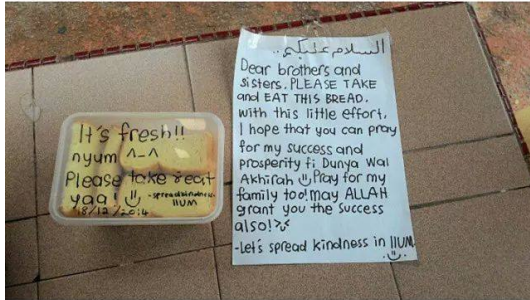 It's fresh!!
nyum ^_^
Please take & eat
yaa!
-spreadkindness-
IIUM
18/12/2014
السلام عليكم..
Dear brothers and
sisters. PLEASE TAKE
and EAT THIS BREAD.
with this little effort,
I hope that you can pray
for my success and
prosperity fi Dunya Wal
Akhirah Pray for my
family too! may ALLAH
grant you the success
also!
-Let's spread kindness in IIUM.